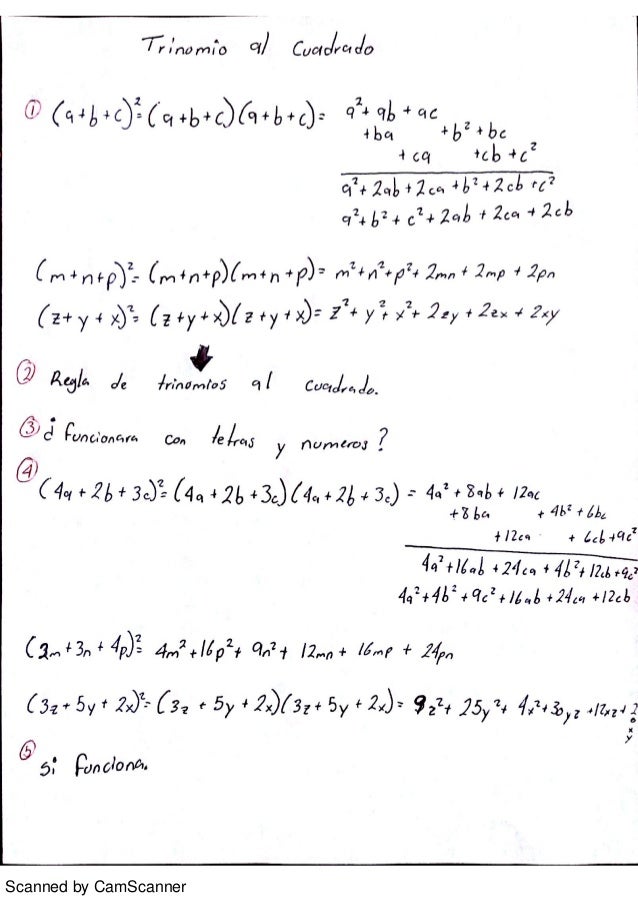 Trinomio al Cuadrado
① (a+b+c)²=(a+b+c)(a+b+c)= a²+ab+ac
+ba +b²+bc
+ca +cb+c²
a²+2ab+2ca+b²+2cb+c²
a²+b²+c²+2ab+2ca+2cb
(m+n+p)²=(m+n+p)(m+n+p)= m²+n²+p²+2mn+2mp+2pn
(z+y+x)²=(z+y+x)(z+y+x)= z²+y²+x²+2zy+2zx+2xy
② Regla de trinomios al cuadrado.
③ ¿ funcionara con letras y numeros?
④
(4a+2b+3c)²=(4a+2b+3c)(4a+2b+3c) = 4a²+8ab+12ac
+8ba +4b²+6bc
+12ca +6cb+9c²
4a²+16ab+24ca+4b²+12cb+9c²
4a²+4b²+9c²+16ab+24ca+12cb
(2m+3n+4p)²= 4m²+16p²+9n²+12mn+16mp+24pn
(3z+5y+2x)²=(3z+5y+2x)(3z+5y+2x)= 9z²+25y²+4x²+30yz+12xz+20xy
⑤ si funciona.
Scanned by CamScanner